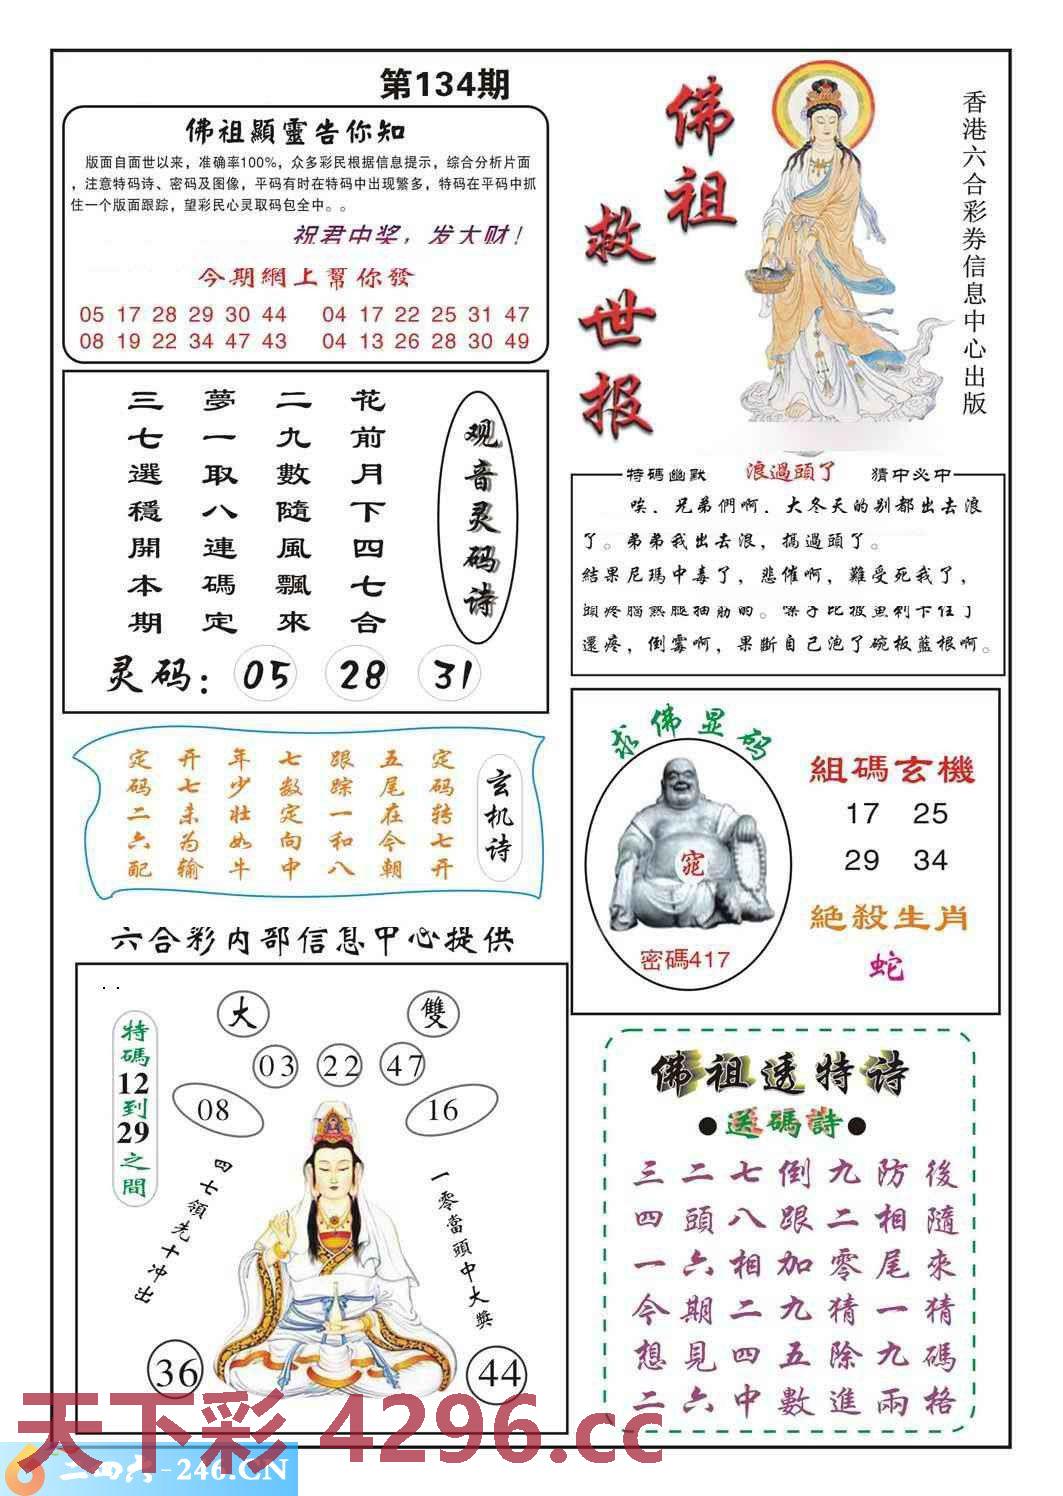 第134期
佛祖顯靈告你知
版面自面世以来，准确率100%，众多彩民根据信息提示，综合分析片面
，注意特码诗、密码及图像，平码有时在特码中出现繁多，特码在平码中抓
住一个版面跟踪，望彩民心灵取码包全中。。
祝君中奖，发大财！
今期網上幫你發
05 17 28 29 30 44 04 17 22 25 31 47
08 19 22 34 47 43 04 13 26 28 30 49
佛祖
救世报
香港六合彩券信息中心出版
观音灵码诗
花前月下四七合
二九數隨風飄來
夢一取八連碼定
三七選穩開本期
灵码：05 28 31
特碼幽默 浪過頭了 猜中必中
唉．兄弟們啊．大冬天的别都出去浪
了。弟弟我出去浪，搞過頭了。
結果尼瑪中毒了，悲催啊，難受死我了，
頭疼腦熱腿抽筋的。嗓子比被魚刺卡住了
還疼，倒霉啊，果斷自己泡了碗板藍根啊。
玄机诗
定码转七开
五尾在今朝
跟踪一和八
七数定向中
年少壮如牛
开七未为输
定码二六配
求佛显码
窕
密碼417
組碼玄機
17 25
29 34
絶殺生肖
蛇
六合彩内部信息中心提供
特碼12到29之間
大
雙
03 22 47
08
16
四七領先十冲出
一零當頭中大獎
36
44
佛祖透特诗
●送碼詩●
三二七倒九防後
四頭八跟二相隨
一六相加零尾來
今期二九猜一猜
想見四五除九碼
二六中數進兩格
天下彩 4296.cc
二四六-246.CN